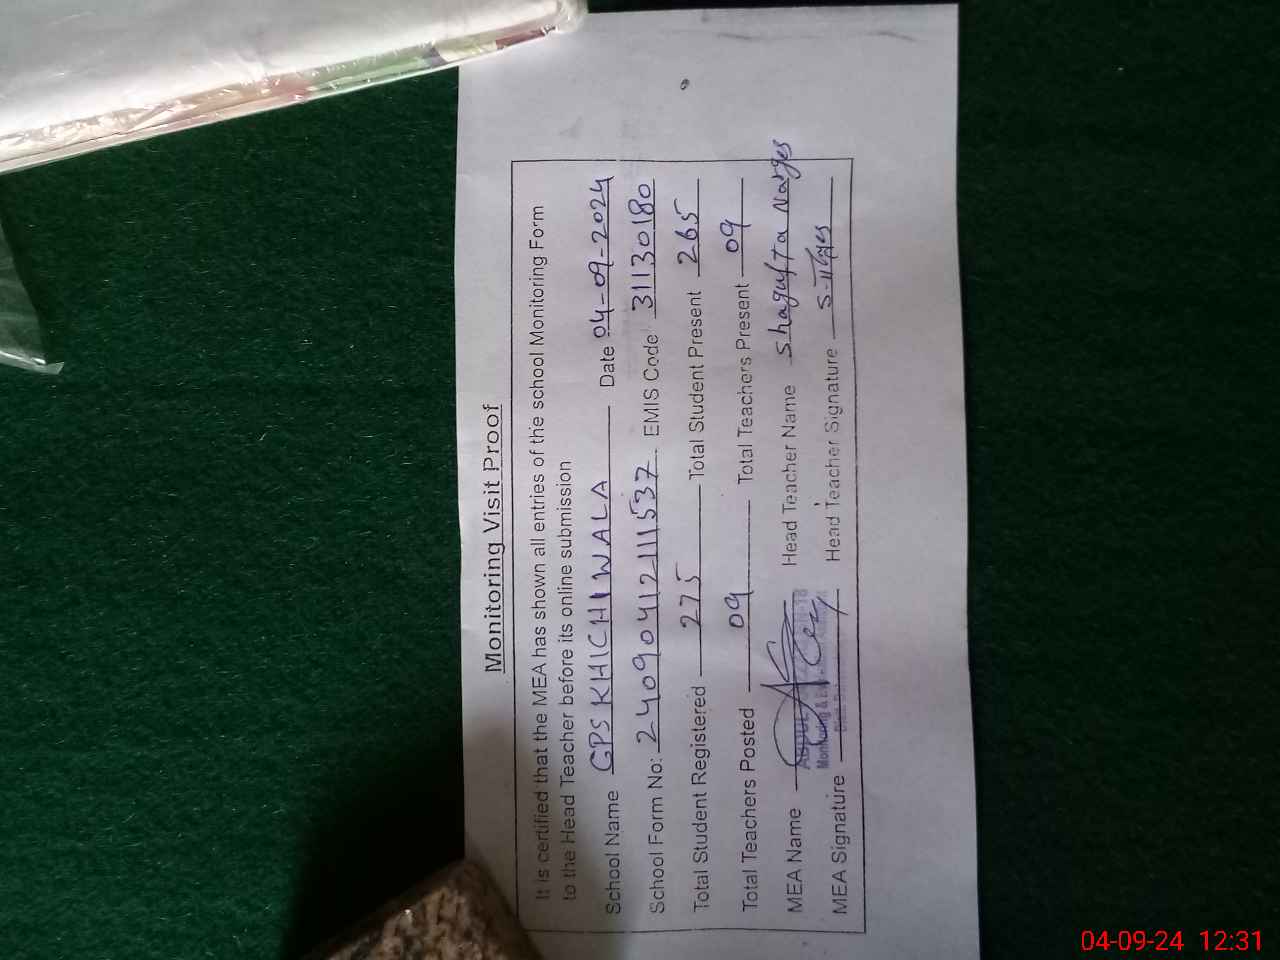 Monitoring Visit Proof
It is certified that the MEA has shown all entries of the school Monitoring Form
to the Head Teacher before its online submission
School Name GPS KHICHIWALA Date 04-09-2024
School Form No: 2409041211537 EMIS Code 31130180
Total Student Registered 275 Total Student Present 265
Total Teachers Posted 09 Total Teachers Present 09
MEA Name Head Teacher Name Shagufta Narges
MEA Signature Head Teacher Signature S.Narges
Monitoring &
04-09-24 12:31